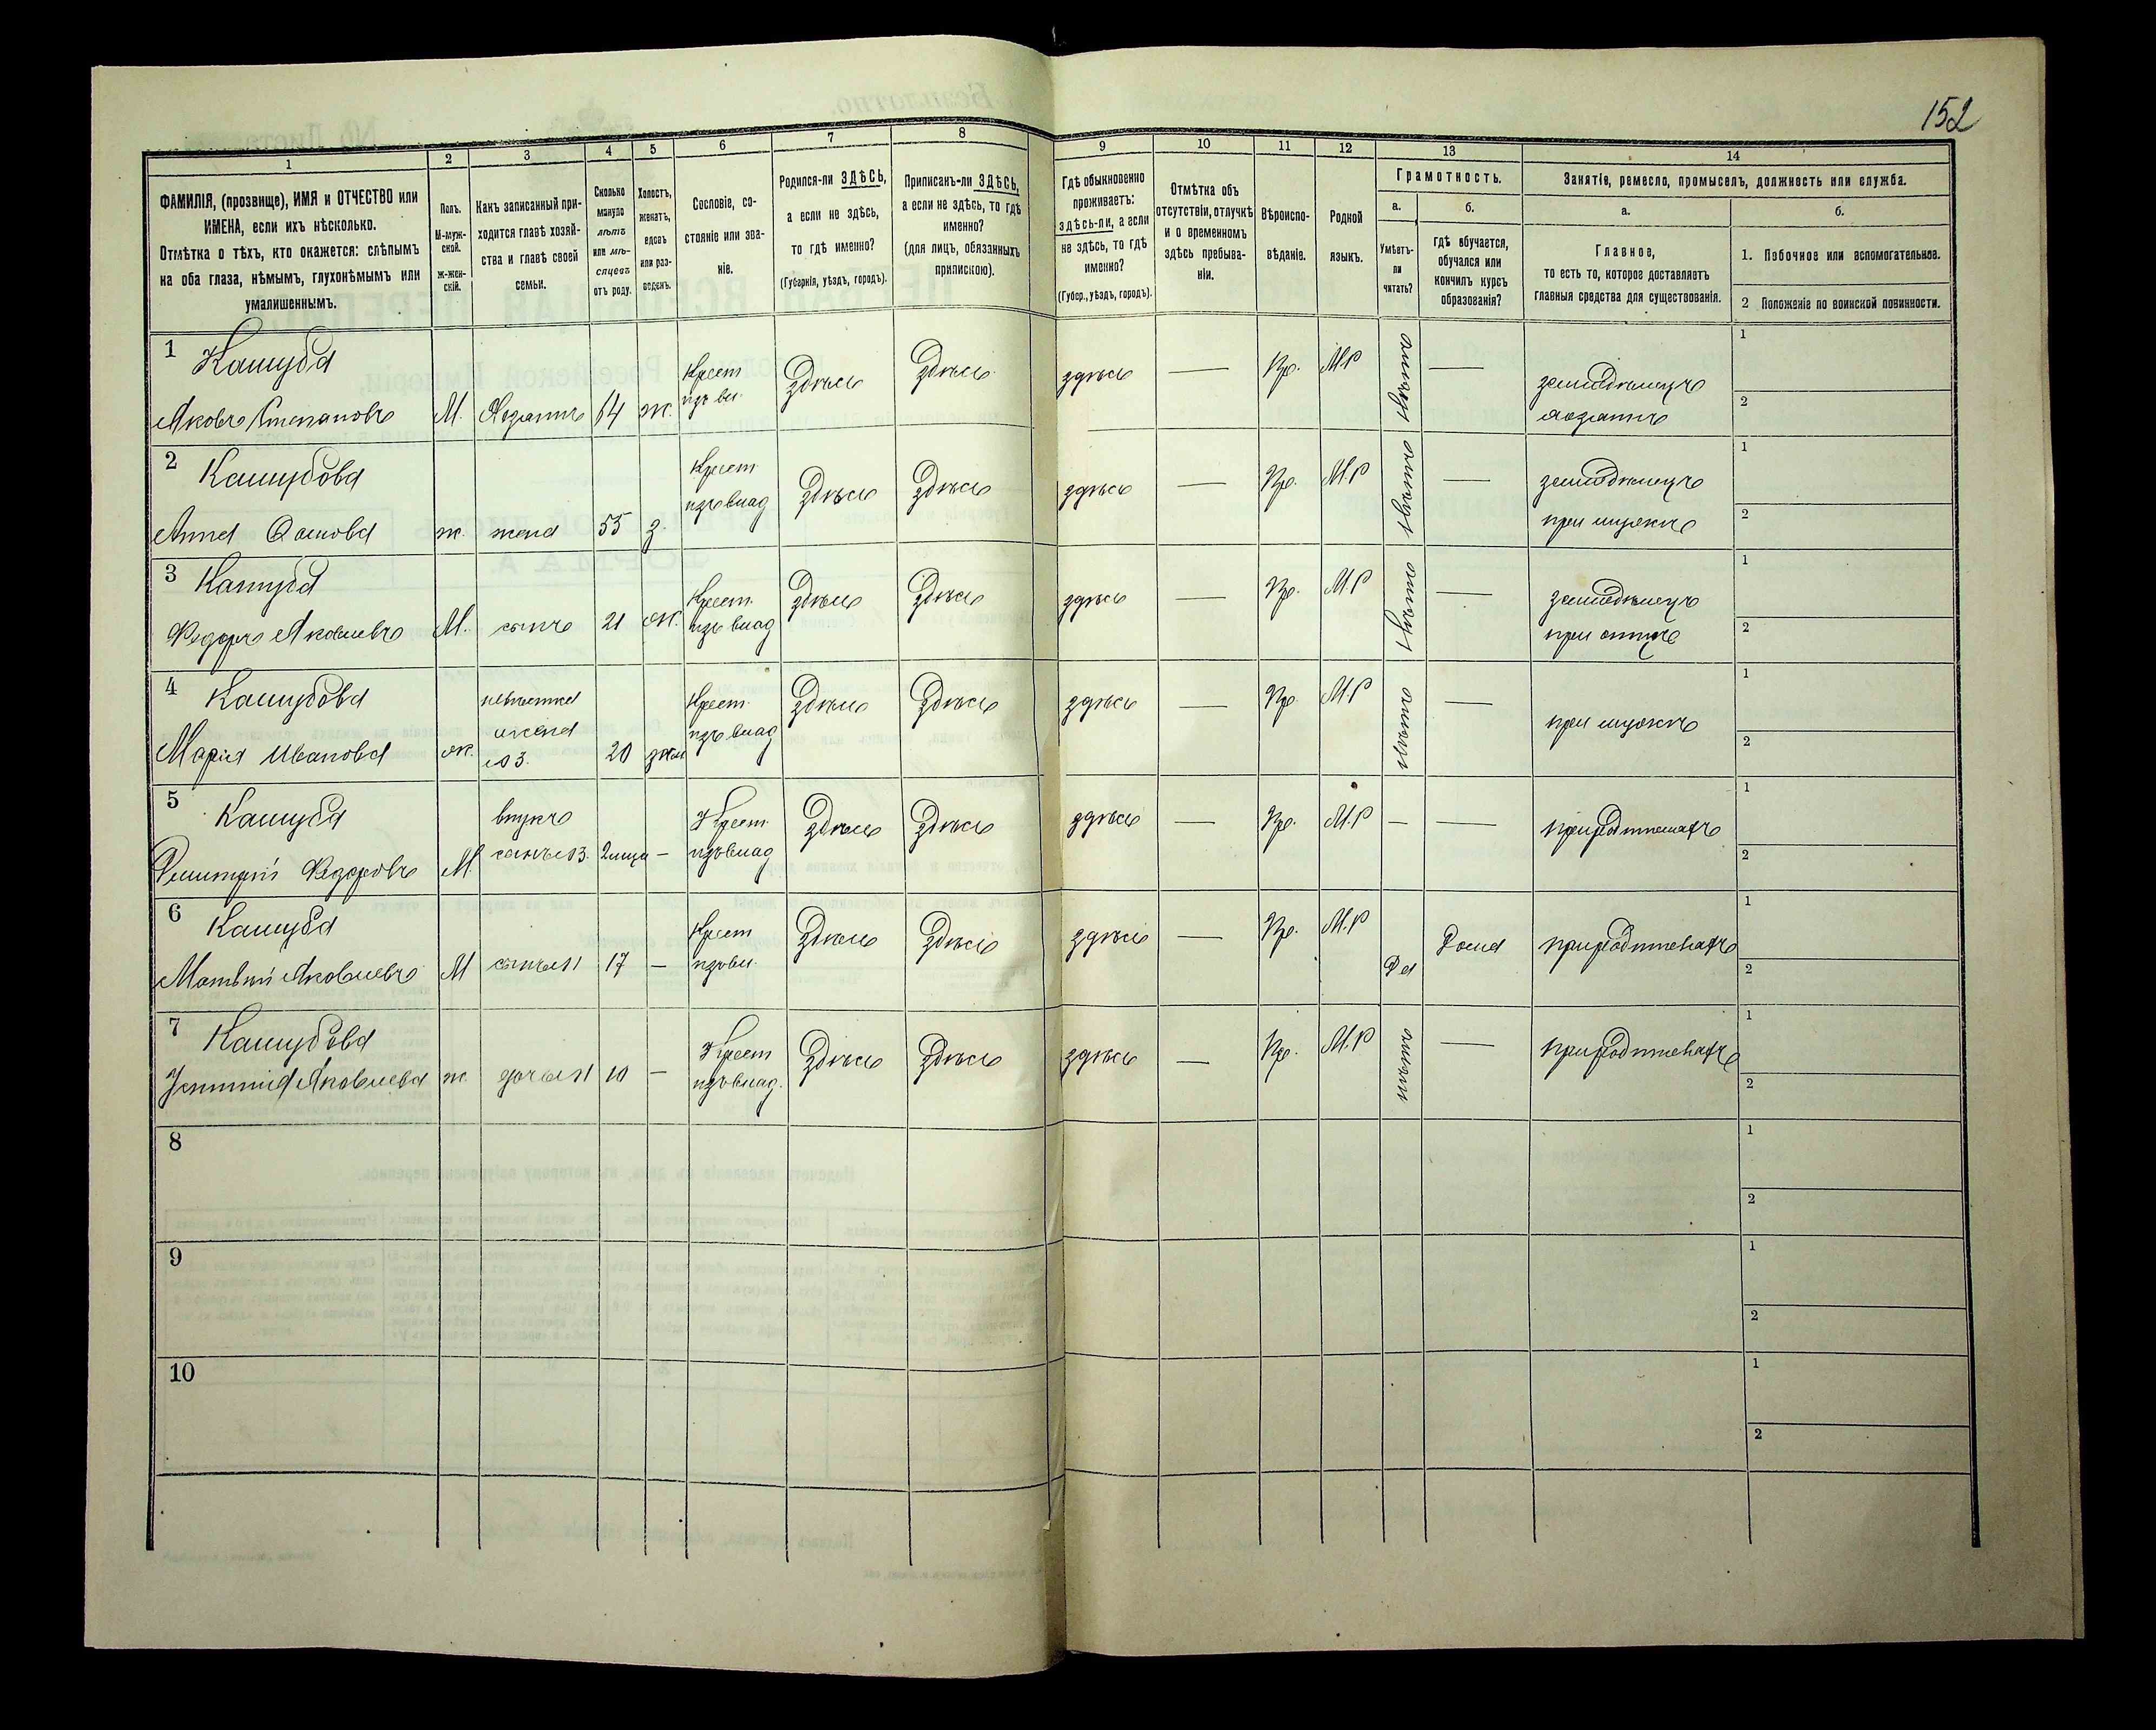 152
1 2 3 4 5 6 7 8 9 10 11 12 13 14
ФАМИЛІЯ, (прозвище), ИМЯ и ОТЧЕСТВО или
ИМЕНА, если ихъ нѣсколько.
Отмѣтка о тѣхъ, кто окажется: слѣпымъ
на оба глаза, нѣмымъ, глухонѣмымъ или
умалишеннымъ.
Полъ.
М-муж-
ской.
ж-жен-
скій.
Какъ записанный при-
ходится главѣ хозяй-
ства и главѣ своей
семьи.
Сколько
минуло
лѣтъ
или мѣ-
сяцевъ
отъ роду.
Холостъ,
женатъ,
вдовъ
или раз-
веденъ.
Сословіе, со-
стояніе или зва-
ніе.
Родился-ли ЗДѢСЬ,
а если не здѣсь,
то гдѣ именно?
(Губернія, уѣздъ, городъ).
Приписанъ-ли ЗДѢСЬ,
а если не здѣсь, то гдѣ
именно?
(для лицъ, обязанныхъ
припискою).
Гдѣ обыкновенно
проживаетъ:
здѣсь-ли, а если
не здѣсь, то гдѣ
именно?
(Губер., уѣздъ, городъ).
Отмѣтка объ
отсутствіи, отлучкѣ
и о временномъ
здѣсь пребыва-
ніи.
Вѣроиспо-
вѣданіе.
Родной
языкъ.
Грамотность.
а.
Умѣетъ-
ли
читать?
б.
гдѣ обучается,
обучался или
кончилъ курсъ
образованія?
Занятіе, ремесло, промыселъ, должность или служба.
а.
Главное,
то есть то, которое доставляетъ
главныя средства для существованія.
б.
1. Побочное или вспомогательное.
2 Положеніе по воинской повинности.
1 Кашуба
Яковъ Степановъ М. Хозяинъ 64 ж. Крест. изъ вл. Здѣсь Здѣсь здѣсь — Пр. М.Р — земледѣлецъ
хозяинъ
1
2
2 Кашубова
Анна ж. жена 55 з. Крест. изъ влад Здѣсь Здѣсь здѣсь — Пр. М.Р — земледѣлецъ
при мужѣ
1
2
3 Кашуба
Федоръ Яковлевъ М. сынъ 21 ж. Крест. изъ влад Здѣсь Здѣсь здѣсь — Пр. М.Р — земледѣлецъ
при отцѣ
1
2
4 Кашубова
Марія Иванова ж. невѣстка жена 3. 20 Крест. изъ влад Здѣсь Здѣсь здѣсь — Пр. М.Р — при мужѣ
1
2
5 Кашуба
Дмитрій Федоровъ М. внукъ сынъ 3. — Крест. изъ влад Здѣсь Здѣсь здѣсь — Пр. М.Р — — при родителяхъ
1
2
6 Кашуба
Матвѣй Яковлевъ М сынъ 1 17 — Крест изъ вл. Здѣсь Здѣсь здѣсь — Пр. М.Р Да Дома при родителяхъ
1
2
7 Кашубова
Яковлева ж. дочь 1 10 — Крест изъ влад. Здѣсь Здѣсь здѣсь — Пр. М.Р — при родителяхъ
1
2
8
1
2
9
1
2
10
1
2